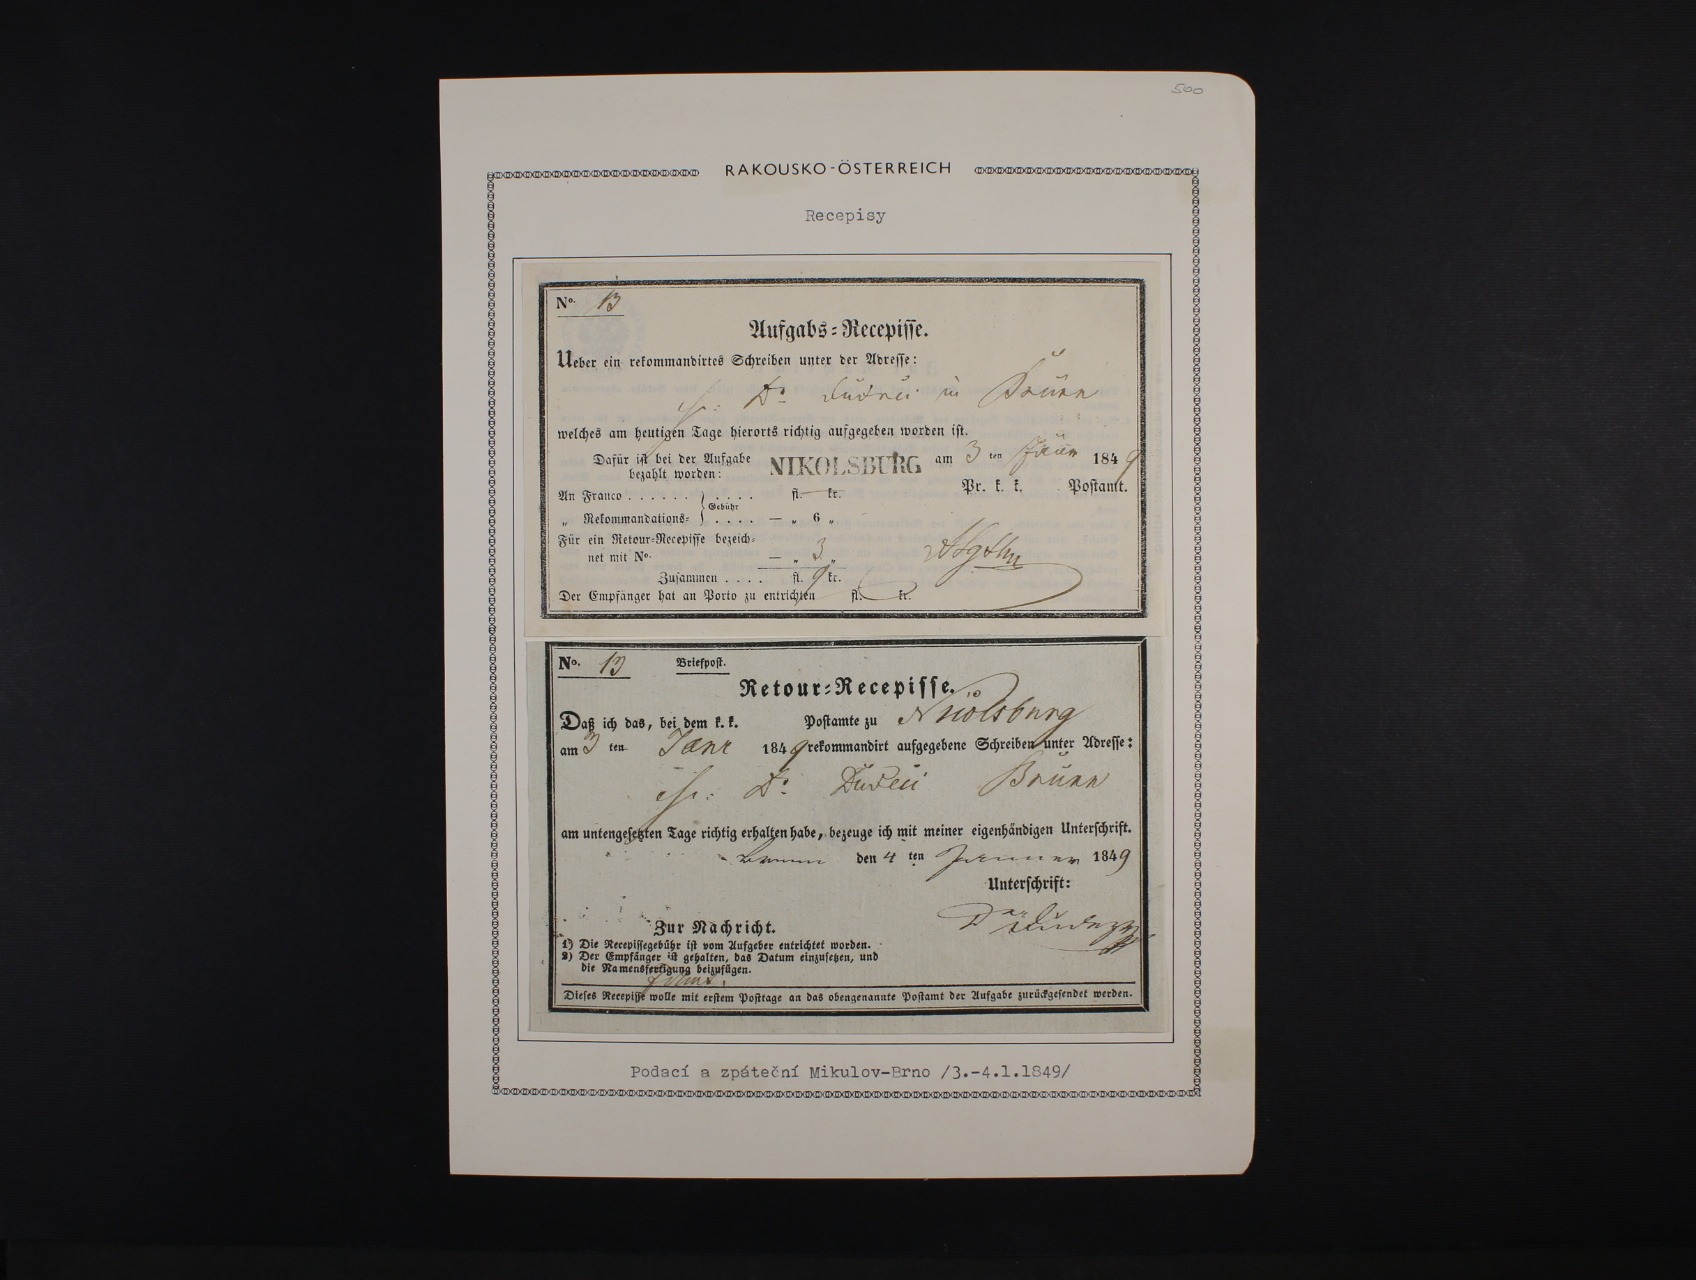 500
RAKOUSKO-ÖSTERREICH
Recepisy
No. 13
Aufgabs-Recepisse.
Ueber ein rekommandirtes Schreiben unter der Adresse:
Dr. in Brünn
welches am heutigen Tage hierorts richtig aufgegeben worden ist.
Dafür ist bei der Aufgabe bezahlt worden:
NIKOLSBURG am 3 ten Jänn 1849
Pr. k. k. Postamt.
An Franco . . . . . . } . . . . fl. — kr.
Gebühr
„ Rekommandations- } . . . . — „ 6 „
Für ein Retour-Recepisse bezeich-
net mit No. — „ 3 „
Zusammen . . . . fl. 9 kr.
Der Empfänger hat an Porto zu entrichten fl. kr.
No. 13 Briefpost.
Retour-Recepisse.
Daß ich das, bei dem k. k. Postamte zu Nikolsburg
am 3 ten Jänr 1849 rekommandirt aufgegebene Schreiben unter Adresse:
Dr. Brünn
am untengesetzten Tage richtig erhalten habe, bezeuge ich mit meiner eigenhändigen Unterschrift.
Brünn den 4 ten Jänner 1849
Unterschrift:
Zur Nachricht.
1) Die Recepissegebühr ist vom Aufgeber entrichtet worden.
2) Der Empfänger ist gehalten, das Datum einzusetzen, und
die Namensfertigung beizufügen.
Dieses Recepisse wolle mit erstem Posttage an das obengenannte Postamt der Aufgabe zurückgesendet werden.
Podací a zpáteční Mikulov-Brno /3.-4.1.1849/